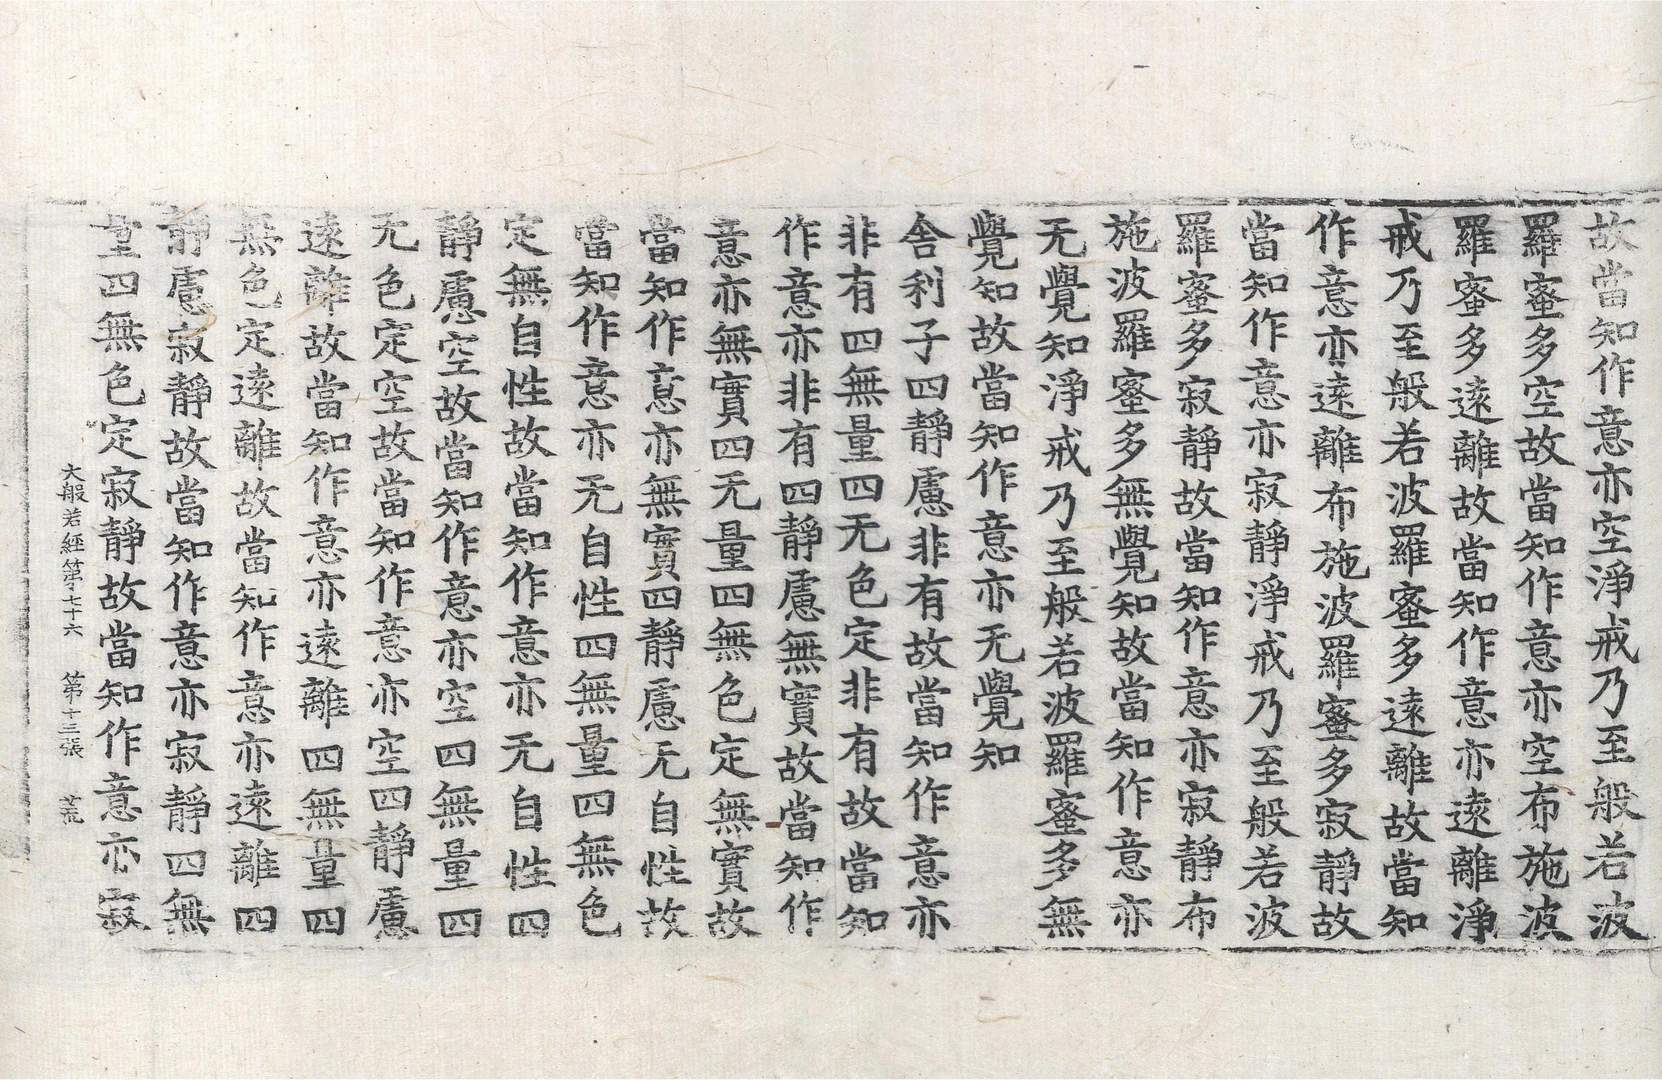 故當知作意亦空淨戒乃至般若波
羅蜜多空故當知作意亦空布施波
羅蜜多遠離故當知作意亦遠離淨
戒乃至般若波羅蜜多遠離故當知
作意亦遠離布施波羅蜜多寂靜故
當知作意亦寂靜淨戒乃至般若波
羅蜜多寂靜故當知作意亦寂靜布
施波羅蜜多無覺知故當知作意亦
无覺知淨戒乃至般若波羅蜜多無
覺知故當知作意亦无覺知
舍利子四靜慮非有故當知作意亦
非有四無量四无色定非有故當知
作意亦非有四靜慮無實故當知作
意亦無實四无量四無色定無實故
當知作意亦無實四靜慮无自性故
當知作意亦无自性四無量四無色
定無自性故當知作意亦无自性四
靜慮空故當知作意亦空四無量四
无色定空故當知作意亦空四靜慮
遠離故當知作意亦遠離四無量四
無色定遠離故當知作意亦遠離四
靜慮寂靜故當知作意亦寂靜四無
量四無色定寂靜故當知作意亦寂
大般若經第七十六 第十三張 荒